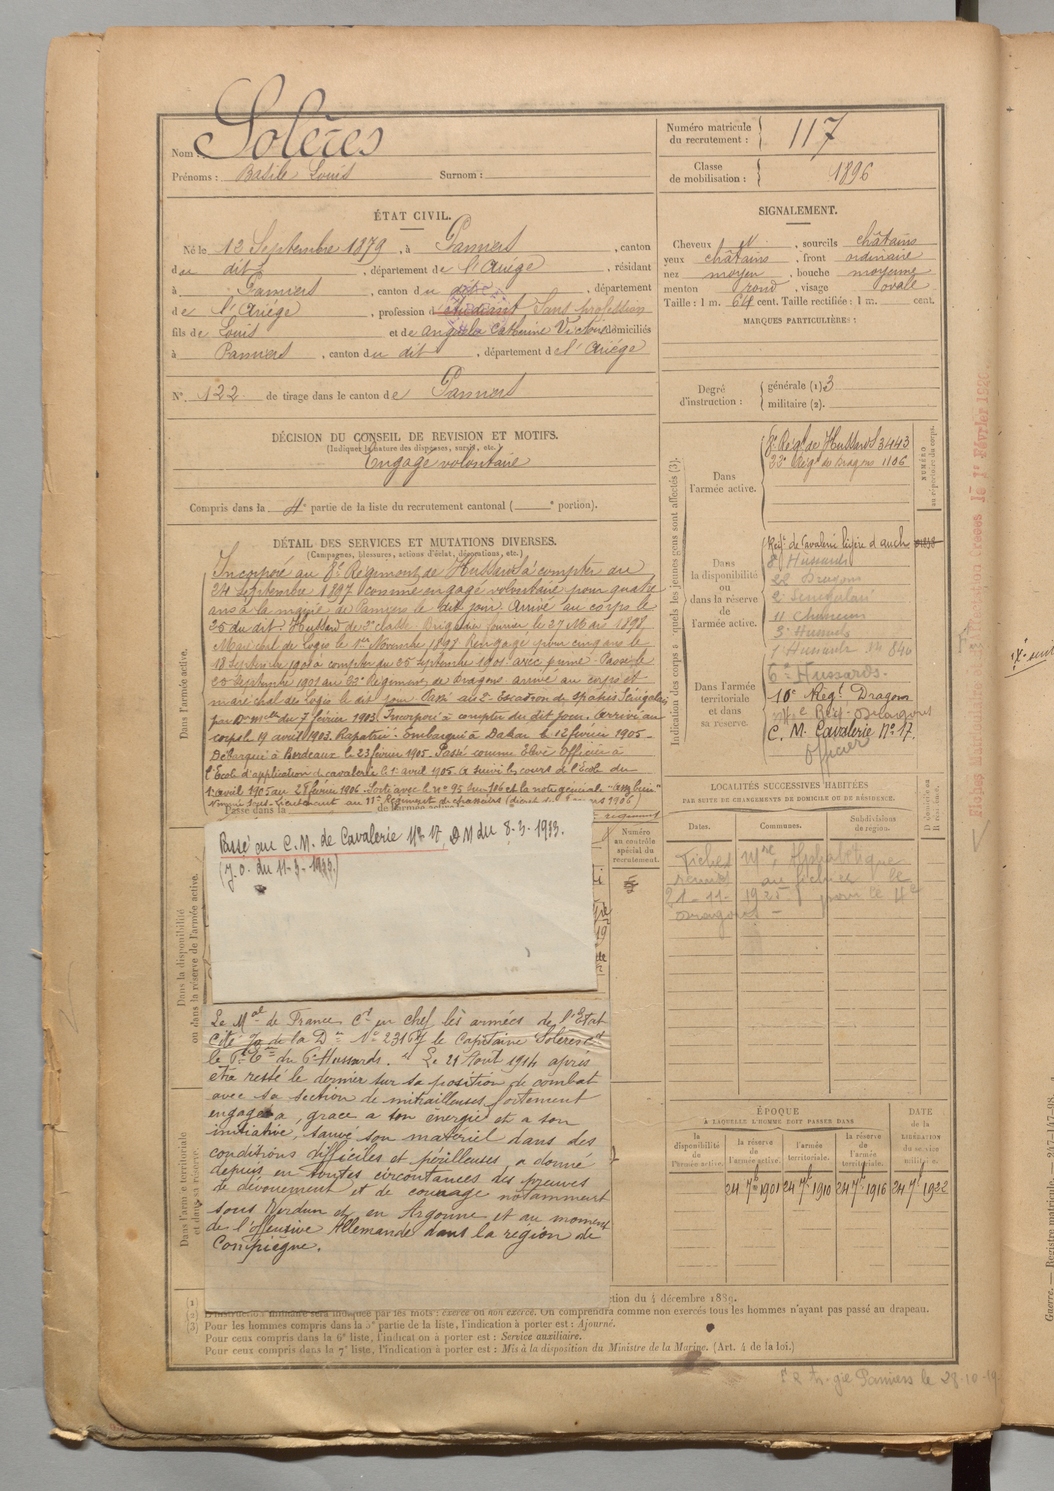 Nom : Solères
Prénoms : Basile Louis Surnom :
Numéro matricule du recrutement : 117
Classe de mobilisation : 1896
ÉTAT CIVIL.
Né le 12 Septembre 1879, à Pamiers, canton
du dit, département de l'Ariége, résidant
à Pamiers, canton du dit, département
de l'Ariége, profession d'étudiant Sans profession
fils de Louis et de Catherine domiciliés
à Pamiers, canton du dit, département de l'Ariége
N° 122 de tirage dans le canton de Pamiers
SIGNALEMENT.
Cheveux N, sourcils châtains
yeux châtains, front ordinaire
nez moyen, bouche moyenne
menton rond, visage ovale
Taille : 1 m. 64 cent. Taille rectifiée : 1 m. cent.
MARQUES PARTICULIÈRES :
Degré d'instruction : générale (1) 3
militaire (2).
DÉCISION DU CONSEIL DE REVISION ET MOTIFS.
(Indiquer la nature des dispenses, sursis, etc.)
Engagé volontaire
Compris dans la 4e partie de la liste du recrutement cantonal ( e portion).
DÉTAIL DES SERVICES ET MUTATIONS DIVERSES.
(Campagnes, blessures, actions d'éclat, décorations, etc.)
Dans l'armée active.
Incorporé au 8e Régiment de Hussards à compter du
24 Septembre 1897 comme engagé volontaire pour quatre
ans à la mairie de Pamiers le dit jour. Arrivé au corps le
25 du dit. Hussard de 2e classe. Brigadier fourrier le 27 Mai 1898
Marechal de logis le 1er Novembre 1898 Rengagé pour cinq ans le
18 Septembre 1901 à compter du 25 Septembre 1901 avec prime. Passé le
25 Septembre 1901 au 22e Régiment de Dragons arrivé au corps et
maréchal des logis le dit jour. Passé au 2e Escadron de Spahis Sénégalais
par Don mlle du 7 février 1903. Incorporé à compter du dit jour. Arrivé au
corps le 19 avril 1903. Rapatrié. Embarqué à Dakar le 12 février 1905.
Débarqué à Bordeaux le 23 février 1905. Passé comme Elève Officier à
l'Ecole d'application de cavalerie le 1er avril 1905. A suivi les cours de l'Ecole du
1er avril 1905 au 28 février 1906. Sorti avec le n° 95 sur 106 et la note générale "assez bien"
Nommé Sous-Lieutenant au 11e Régiment de chasseurs
Passé dans la
Passé au C.M. de Cavalerie N° 17, DM du 8-3-1933.
(J.O. du 11-3-1933)
Dans la disponibilité ou dans la réserve de l'armée active.
Le Mal de France Ct en chef les armées de l'Est
Cité à de la Don N° le Capitaine Solères
le du 6e Hussards. "Le 21 Aout 1914 après
etre resté le dernier sur sa position de combat
avec sa section de mitrailleuses fortement
engagée a, grace a son énergie et a son
initiative, sauvé son matériel dans des
conditions difficiles et périlleuses, a donné
depuis en toutes circonstances des preuves
de dévouement et de courage notamment
sous Verdun et en Argonne et au moment
de l'offensive Allemande dans la région de
Compiègne.
Dans l'armée territoriale et dans sa réserve.
Indication des corps auxquels les jeunes gens sont affectés (3).
NUMÉRO au répertoire du corps.
Dans l'armée active.
8e Régt de Hussards 3443
22e Régt de Dragons 1106
Dans la disponibilité ou dans la réserve de l'armée active.
Régt de Cavalerie légère d'auch
8e Hussards
22 Dragons
2e Sénégalais
11 Chasseurs
3e Hussards
1 Hussards
Dans l'armée territoriale et dans sa réserve.
6e Hussards.
10e Régt Dragons
C. M. Cavalerie N° 17.
Officier
LOCALITÉS SUCCESSIVES HABITÉES
PAR SUITE DE CHANGEMENTS DE DOMICILE OU DE RÉSIDENCE.
Dates. Communes. Subdivisions de région.
Fiches Mle Alphabétique
remis au fichier le
21-11-1925 pour le
Dragons
Numéro au contrôle spécial du recrutement.
ÉPOQUE
À LAQUELLE L'HOMME DOIT PASSER DANS
la disponibilité de l'armée active.
la réserve de l'armée active.
l'armée territoriale.
la réserve de l'armée territoriale.
DATE de la LIBÉRATION du service militaire.
24 7bre 1901 24 7bre 1910 24 7bre 1916 24 7bre 1922
ction du 4 décembre 1889.
militaire sera indiquée par les mots : exercé ou non exercé. On comprendra comme non exercés tous les hommes n'ayant pas passé au drapeau.
Pour les hommes compris dans la 5e partie de la liste, l'indication à porter est : Ajourné.
Pour ceux compris dans la 6e liste, l'indication à porter est : Service auxiliaire.
Pour ceux compris dans la 7e liste, l'indication à porter est : Mis à la disposition du Ministre de la Marine. (Art. 4 de la loi.)
Pamiers le 28-10-19